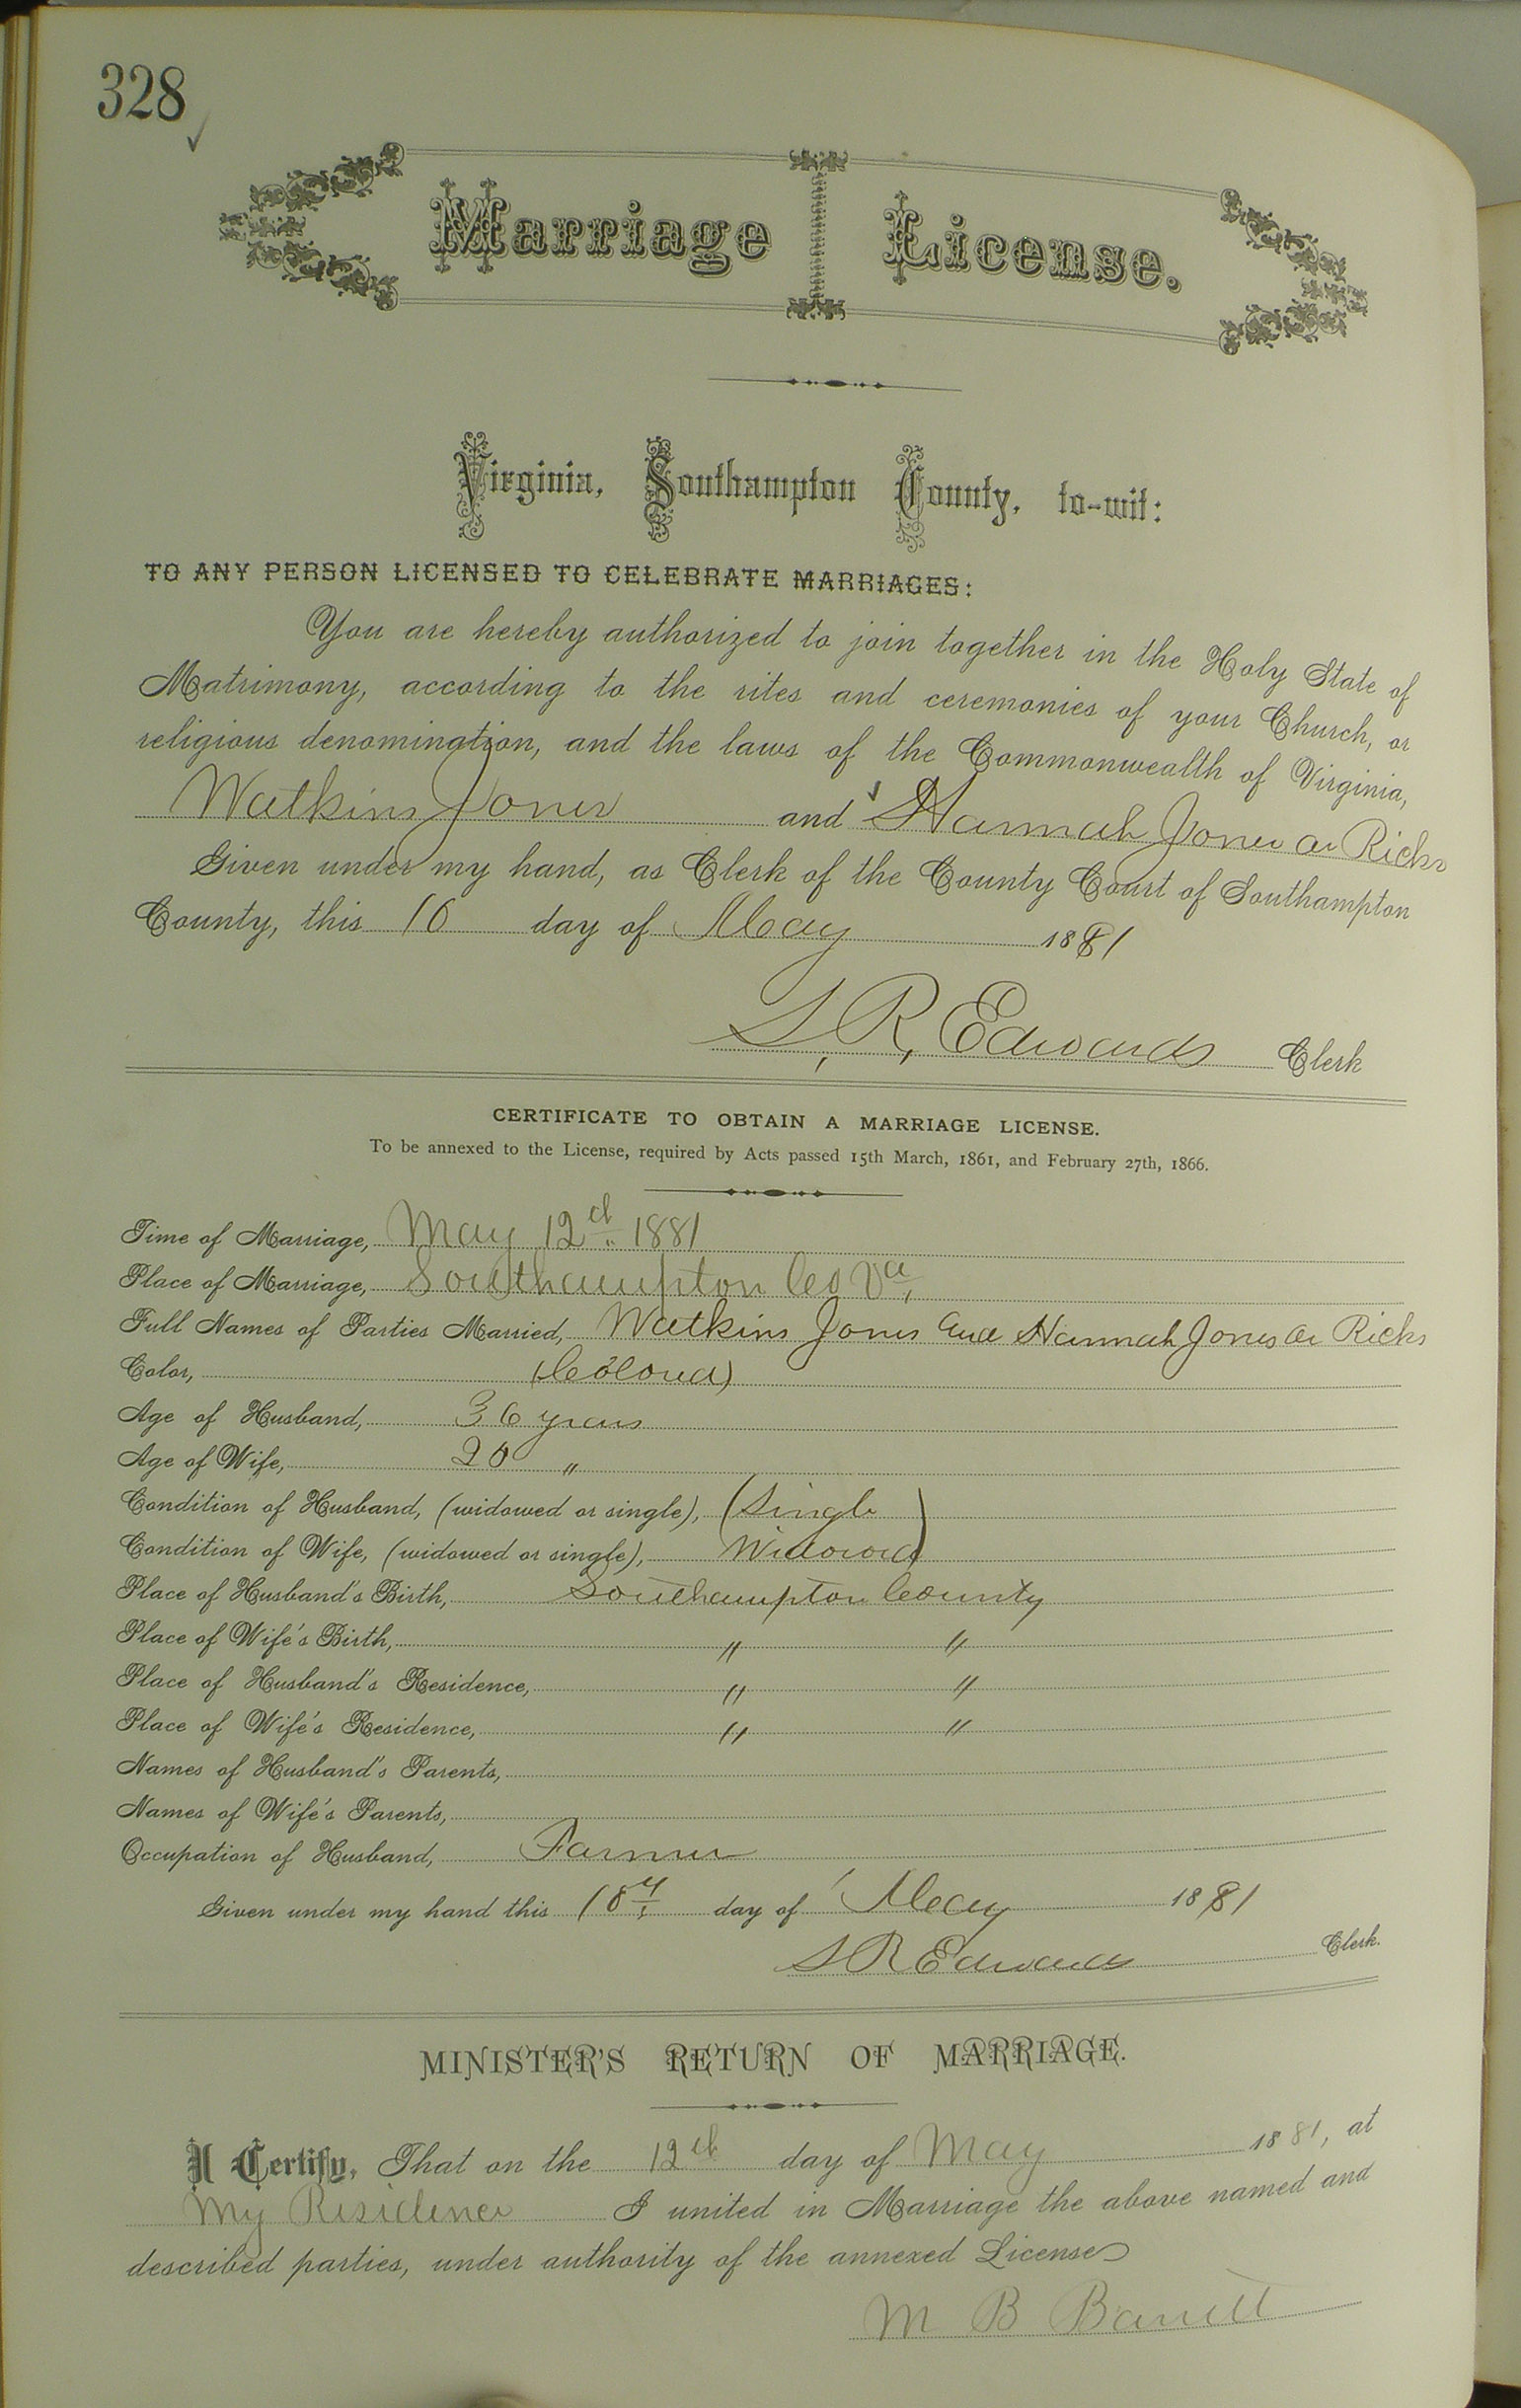 328
Marriage License.
Virginia, Southampton County, to-wit:
TO ANY PERSON LICENSED TO CELEBRATE MARRIAGES:
You are hereby authorized to join together in the Holy State of
Matrimony, according to the rites and ceremonies of your Church, or
religious denomination, and the laws of the Commonwealth of Virginia,
Watkins Jones and Hannah Jones or Ricks
Given under my hand, as Clerk of the County Court of Southampton
County, this 10 day of May 1881
L. R. Edwards Clerk
CERTIFICATE TO OBTAIN A MARRIAGE LICENSE.
To be annexed to the License, required by Acts passed 15th March, 1861, and February 27th, 1866.
Time of Marriage, May 12th 1881
Place of Marriage, Southampton Co Va,
Full Names of Parties Married, Watkins Jones and Hannah Jones or Ricks
Color, (Colored)
Age of Husband, 36 years
Age of Wife, 20 "
Condition of Husband, (widowed or single), (Single
Condition of Wife, (widowed or single), Widowed)
Place of Husband's Birth, Southampton County
Place of Wife's Birth, " "
Place of Husband's Residence, " "
Place of Wife's Residence, " "
Names of Husband's Parents,
Names of Wife's Parents,
Occupation of Husband, Farmer
Given under my hand this 10th day of May 1881
L R Edwards Clerk.
MINISTER'S RETURN OF MARRIAGE.
I Certify, That on the 12th day of May 1881, at
My Residence I united in Marriage the above named and
described parties, under authority of the annexed License
M B Barrett